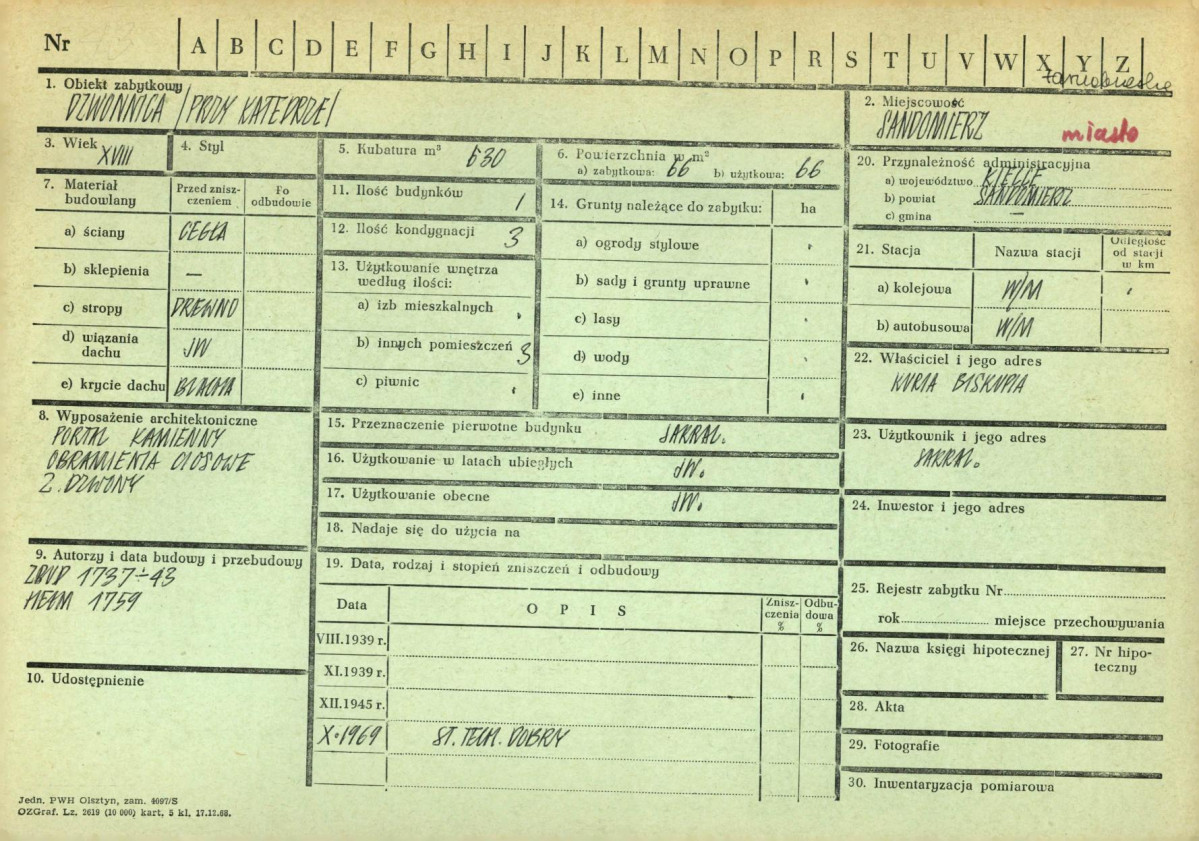 Nr A B C D E F G H I J K L M N O P R S T U V W X Y Z
1. Obiekt zabytkowy
DZWONNICA /PRZY KATEDRZE/
2. Miejscowość
SANDOMIERZ miasto
3. Wiek XVIII
4. Styl
5. Kubatura m³ 630
6. Powierzchnia w m²
a) zabytkowa: 66 b) użytkowa: 66
20. Przynależność administracyjna
a) województwo KIELCE
b) powiat SANDOMIERZ
c) gmina —
7. Materiał budowlany
Przed zniszczeniem
Po odbudowie
a) ściany CEGŁA
b) sklepienia —
c) stropy DREWNO
d) wiązania dachu JW
e) krycie dachu BLACHA
11. Ilość budynków 1
12. Ilość kondygnacji 3
13. Użytkowanie wnętrza według ilości:
a) izb mieszkalnych
b) innych pomieszczeń 3
c) piwnic
14. Grunty należące do zabytku: ha
a) ogrody stylowe
b) sady i grunty uprawne
c) lasy
d) wody
e) inne
21. Stacja Nazwa stacji Odległość od stacji w km
a) kolejowa W/M
b) autobusowa W/M
22. Właściciel i jego adres
KURIA BISKUPIA
8. Wyposażenie architektoniczne
PORTAL KAMIENNY
OBRAMIENIA CIOSOWE
2. DZWONY
15. Przeznaczenie pierwotne budynku SAKRAL.
16. Użytkowanie w latach ubiegłych JW.
17. Użytkowanie obecne JW.
18. Nadaje się do użycia na
23. Użytkownik i jego adres
SAKRAL.
24. Inwestor i jego adres
9. Autorzy i data budowy i przebudowy
ZBUD 1737÷43
HEŁM 1759
10. Udostępnienie
19. Data, rodzaj i stopień zniszczeń i odbudowy
Data OPIS Zniszczenia % Odbudowa %
VIII.1939 r.
XI.1939 r.
XII.1945 r.
X.1969 ST. TECH. DOBRY
25. Rejestr zabytku Nr
rok miejsce przechowywania
26. Nazwa księgi hipotecznej
27. Nr hipoteczny
28. Akta
29. Fotografie
30. Inwentaryzacja pomiarowa
Jedn. PWH Olsztyn, zam. 4097/S
OZGraf. Lz. 2619 (10 000) kart. 5 kl. 17.12.68.